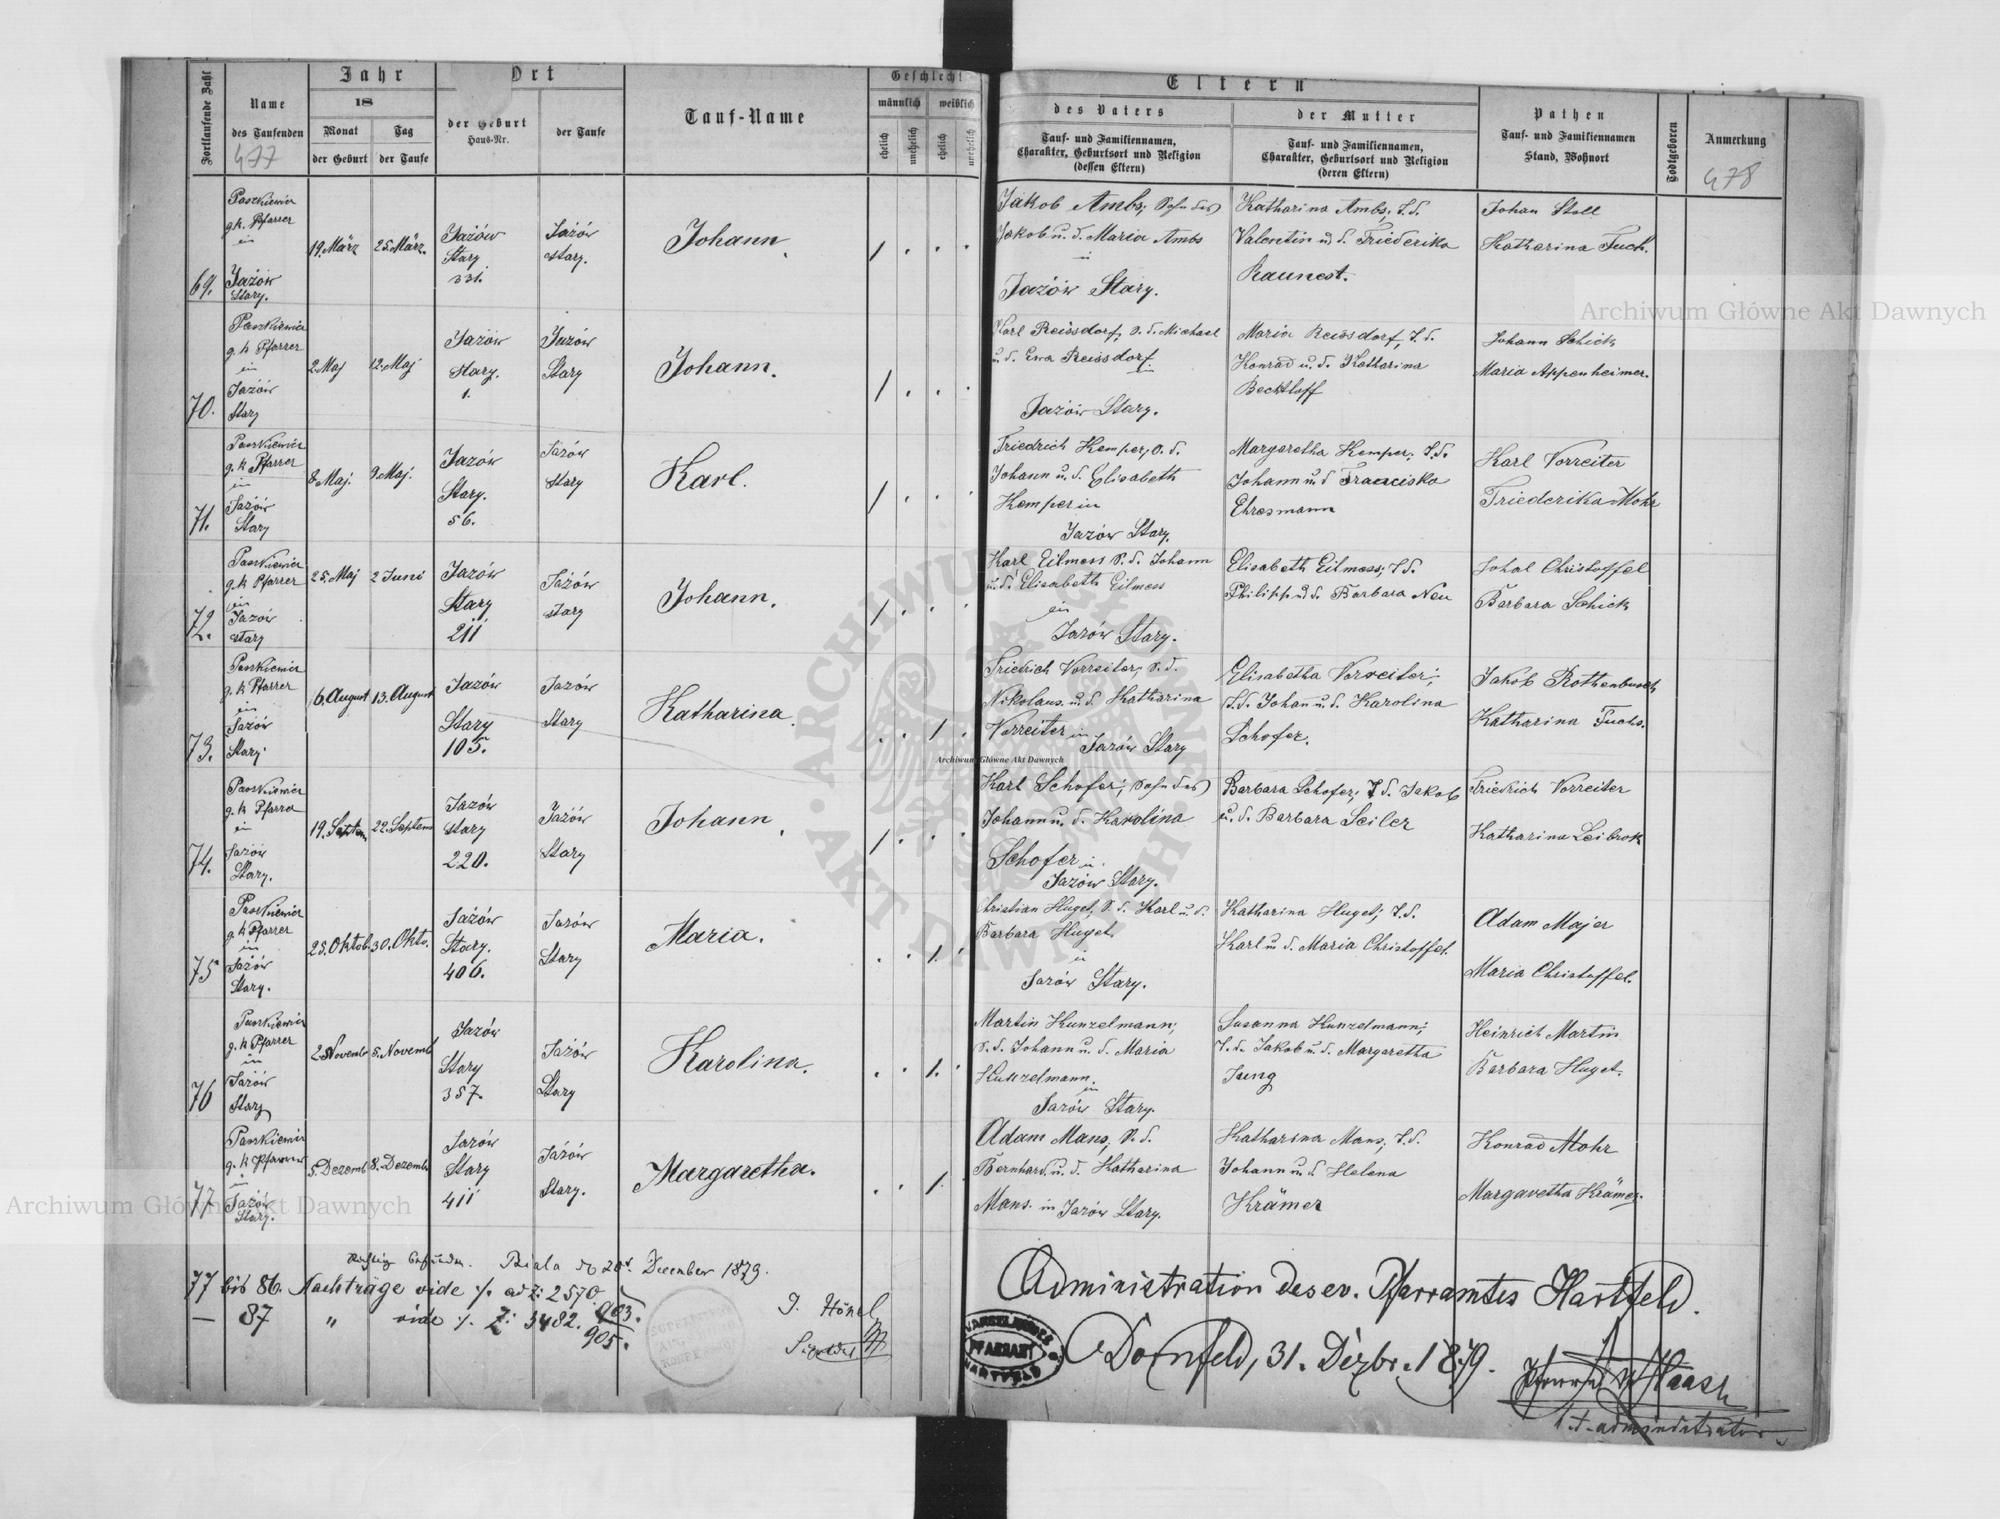 Jahr
Ort
Geschlecht
Eltern
Fortlaufende Zahl
Name
des Taufenden
477
18
Monat
der Geburt
Tag
der Taufe
der Geburt
Haus-Nr.
der Taufe
Tauf-Name
männlich
weiblich
ehelich
unehelich
ehelich
unehelich
des Vaters
Tauf- und Familiennamen,
Charakter, Geburtsort und Religion
(dessen Eltern)
der Mutter
Tauf- und Familiennamen,
Charakter, Geburtsort und Religion
(deren Eltern)
Pathen
Tauf- und Familiennamen
Stand, Wohnort
Todtgeboren
Anmerkung
478
69.
Paszkiewicz
g.k. Pfarrer
in
Jazów
Stary.
19. März
25. März.
Jazów
Stary
331.
Jazów
Stary.
Johann.
Jakob Ambs, Sohn des
Jakob u. d. Maria Ambs
in
Jazów Stary.
Katharina Ambs, T. d.
Valentin u. d. Friederika
Raunest.
Johan Stoll
Katharina Fuch.
70.
Paszkiewicz
g. k Pfarrer
in
Jazów
Stary
2. Maj
12. Maj
Jazów
Stary.
1.
Jazów
Stary
Johann.
Karl Reissdorf, S. d. Michael
u. d. Ewa Reissdorf.
in
Jazów Stary.
Maria Reissdorf, T. d.
Konrad u. d. Katharina
Bechtloff
Johann Schick
Maria Appenheimer.
71.
Paszkiewicz
g. k Pfarrer
in
Jazów
Stary
8. Maj.
9. Maj.
Jazów
Stary.
56.
Jazów
Stary
Karl.
Friedrich Kemper, S. d.
Johann u. d. Elisabeth
Kemper in
Jazów Stary.
Margaretha Kemper, T. d.
Johann u d Franciska
Ehresmann
Karl Vorreiter
Friederika Mohr
72.
Paszkiewicz
g. k Pfarrer
in
Jazów
Stary
25. Maj
2 Juni
Jazów
Stary
211
Jazów
Stary
Johann.
Karl Eilmess S. d. Johann
u. d. Elisabeth Eilmess
in
Jazów Stary.
Elisabeth Eilmess, T. d.
Philipp u d. Barbara Neu
Johal Christoffel
Barbara Schick
73.
Paszkiewicz
g. k Pfarrer
in
Jazów
Stary.
6. August
13. August
Jazów
Stary
105.
Jazów
Stary
Katharina.
Friedrich Vorreiter, S. d.
Nikolaus u. d. Katharina
Vorreiter in
Jazów Stary
Elisabetha Vorreiter;
T. d. Johan u. d. Karolina
Schofer.
Jakob Rothenbusch
Katharina Fuchs.
74.
Paszkiewicz
g. k Pfarrer
in
Jazów
Stary.
19. Septem
22. Septem
Jazów
Stary
220.
Jazów
Stary
Johann.
Karl Schofer; Sohn des
Johann u. d. Karolina
Schofer in
Jazów Stary.
Barbara Schofer; T d. Jakob
u. d. Barbara Seiler
Friedrich Vorreiter
Katharina Leibrok
75
Paszkiewicz
g. k Pfarrer
in
Jazów
Stary.
25. Oktob
30. Okto.
Jazów
Stary.
406.
Jazów
Stary
Maria.
Christian Huget, S. d. Karl u. d.
Barbara Huget.
in
Jazów Stary.
Katharina Huget; T. d.
Karl u d. Maria Christoffel.
Adam Majer
Maria Christoffel.
76
Paszkiewicz
g. k Pfarrer
in
Jazów
Stary
2. Novemb
5. Novemb
Jazów
Stary
357.
Jazów
Stary
Karolina.
Martin Kunzelmann;
S. d. Johann u. d. Maria
Kunzelmann.
in
Jazów Stary.
Susanna Kunzelmann;
T. d. Jakob u. d. Margaretha
Jung
Heinrich Martin
Barbara Huget.
77
Paszkiewicz
g. k Pfarrer
in
Jazów
Stary.
5. Dezemb
8. Dezemb
Jazów
Stary
411
Jazów
Stary.
Margaretha.
Adam Mans, S. d.
Bernhard u. d. Katharina
Mans. in Jazów Stary.
Katharina Mans, T. d.
Johann u d Helena
Krämer
Konrad Mohr
Margaretha Krämer.
Richtig befunden. Biala 20t. December 1879.
77 bis 86. Nachträge vide ·/. ad Z: 2570. 903.
— 87 " vide ·/. Z: 3482. 905.
J. Hönel
Administration des ev. Pfarramtes Hartfeld.
Dornfeld, 31. Dezbr. 1879.
EVANGELISCHES
PFARRAMT
HARTFELD
Pfarrer Haase
administrator
Archiwum Główne Akt Dawnych
Archiwum Główne Akt Dawnych
Archiwum Główne Akt Dawnych
ARCHIWUM GŁÓWNE AKT DAWNYCH